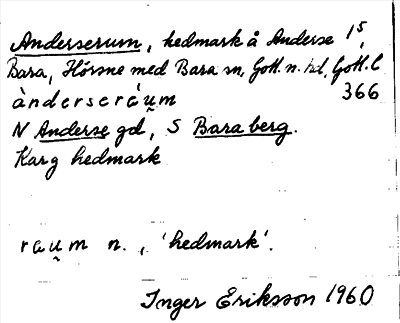 Anderserum, hedmark å Anderse 1⁵,
Bara, Hörsne med Bara sn, Gotl. n. hd, Gotl. l
366
àndersərá́u̯m
N Anderse gd, S Bara berg.
Karg hedmark
rau̯m n., 'hedmark'.
Inger Eriksson 1960